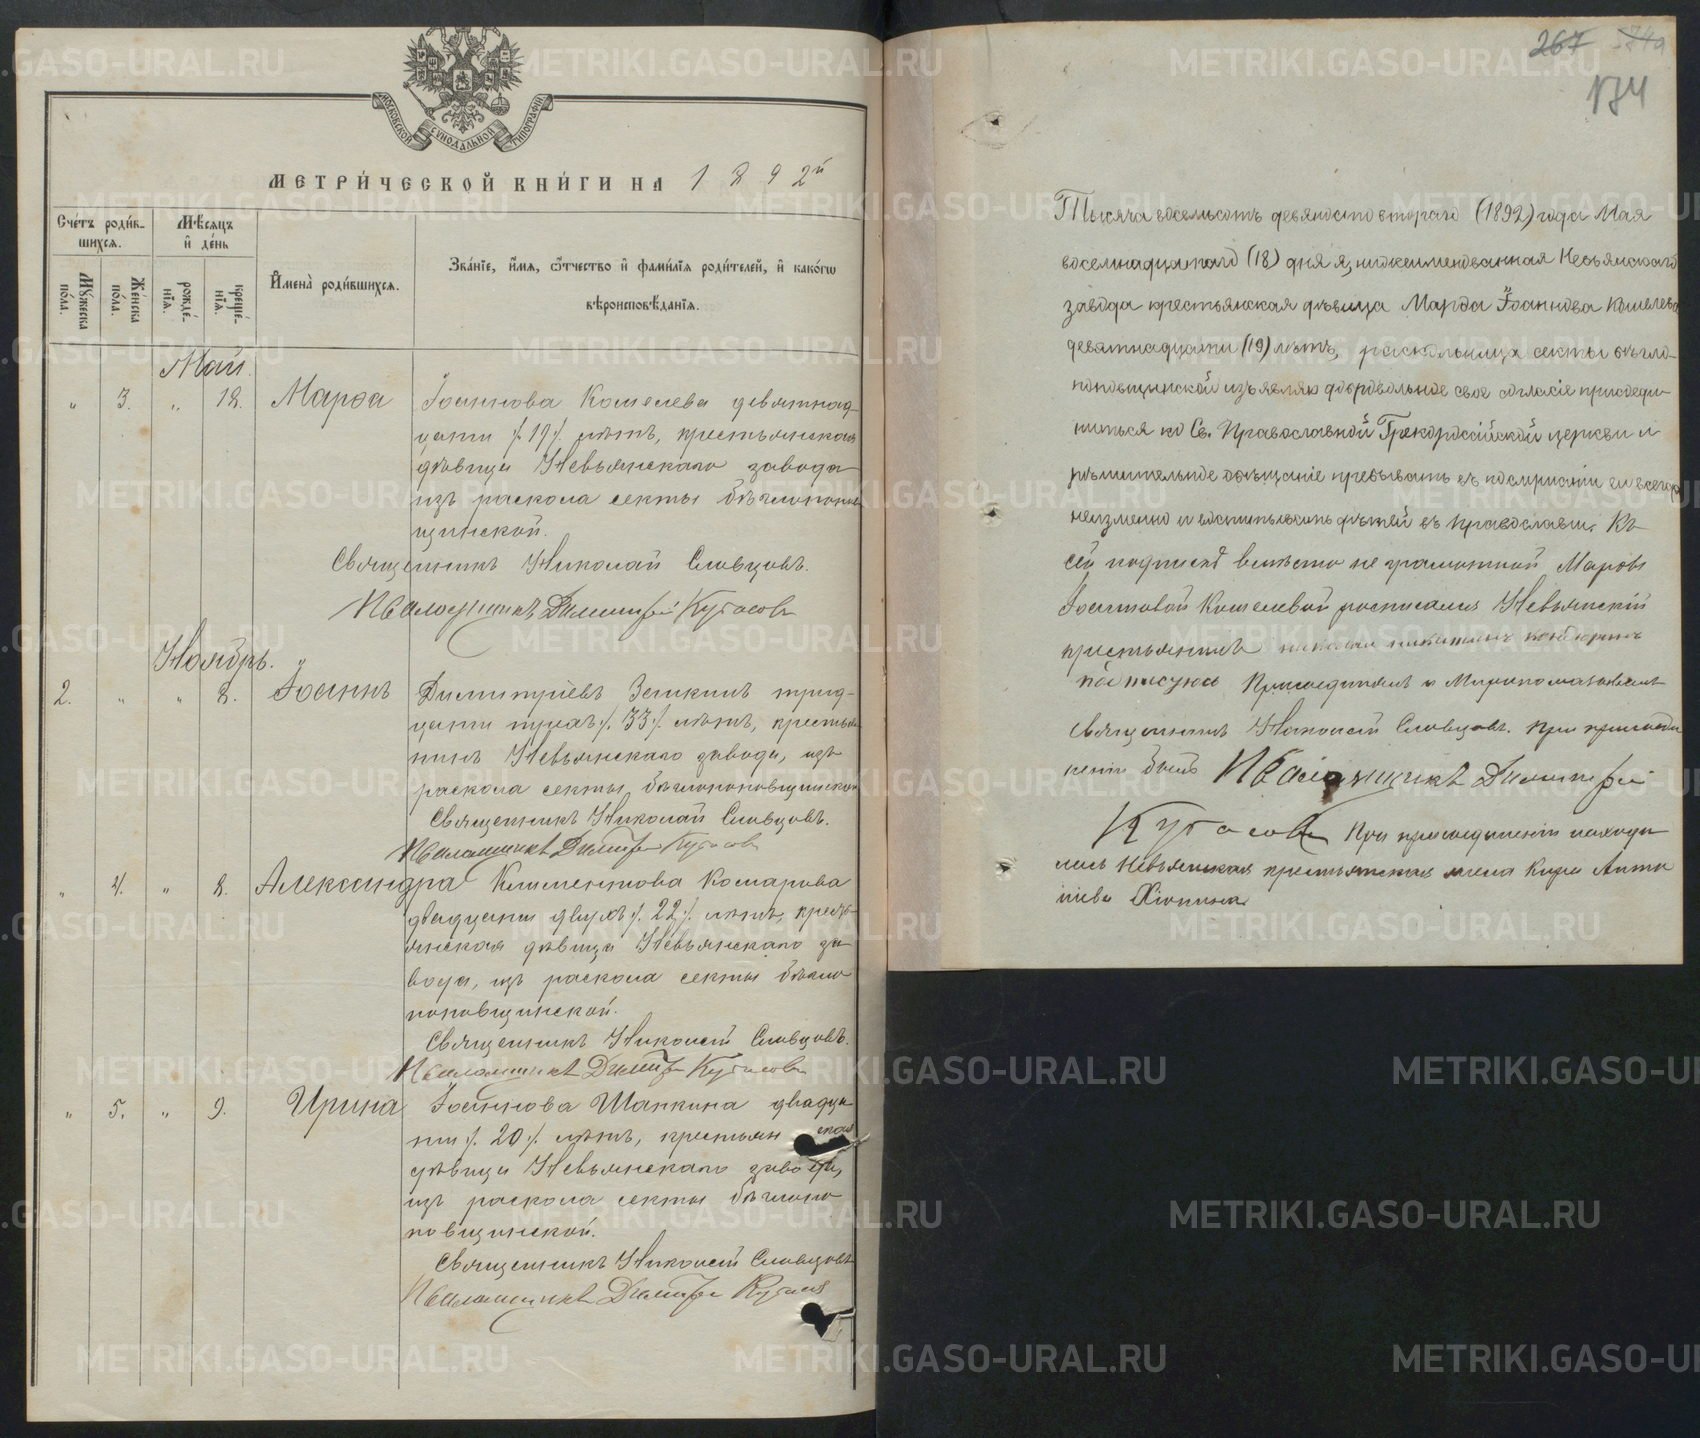 МЕТРИ́ЧЕСКОЙ КНИ́ГИ НА 1892й
МОСКОВСКОЙ СѴНОДАЛЬНОЙ ТИПОГРАФІИ
Сче́тъ роди́в-
шихся.
Мѣ́сяцъ
и҆ де́нь
И҆мена̀ роди́вшихся.
Зва́нїе, и҆́мя, ѻ҆́тчество и҆ фами́лїя роди́телей, и҆ како́гѡ
вѣроисповѣ́данїя.
Мꙋ́жеска
по́ла.
Же́нска
по́ла.
рожде́-
нїя.
креще́-
нїя.
Май.
" 3. " 18. Марѳа Іоаннова Кошелева девятнад-
цати /19/ лѣтъ, крестьянская
дѣвица Невьянскаго завода
изъ раскола секты бѣглопопов-
щинской.
Священникъ Николай Словцовъ.
Псаломщикъ Димитрій Кутасовъ
Ноябрь.
2. " " 8. Іоаннъ Димитріевъ Зенкинъ трид-
цати трехъ /33/ лѣтъ, крестья-
нинъ Невьянскаго завода, изъ
раскола секты, бѣглопоповщинской
Священникъ Николай Словцовъ.
Псаломщикъ Димитрій Кутасовъ
" 4. " 8. Александра Климентова Комарова
двадцати двухъ /22/ лѣтъ, кресть-
янская дѣвица Невьянскаго за-
вода, изъ раскола секты бѣгло
поповщинской.
Священникъ Николай Словцовъ.
Псаломщикъ Димитрій Кутасовъ
" 5. " 9. Ирина Іоаннова Шапкина двадца-
ти /20/ лѣтъ, крестьянская
дѣвица Невьянскаго завода,
изъ раскола секты бѣглопо-
повщинской.
Священникъ Николай Словцовъ
Псаломщикъ Димитрій Кутасовъ
267
174
Тысяча восемьсотъ девяносто втораго (1892) года Мая
восемнадцатаго (18) дня я, нижеименованная Невьянскаго
завода крестьянская дѣвица Марѳа Іоаннова Кошелева
девятнадцати (19) лѣтъ, раскольница секты бѣгло-
поповщинской изъявляю добровольное свое согласіе присоеди-
ниться ко Св. Православной Грекороссійской церкви и
рѣшительное обѣщаніе пребывать въ послушаніи ея всегда
неизменно и воспитывать дѣтей въ православіи. Къ
сей подпискѣ вмѣсто не грамотной Марѳы
Іоанновой Кошелевой росписался Невьянскій
крестьянинъ николаи никитинъ
подписуюсь Присоединялъ и Миропомазывалъ
Священникъ Николай Словцовъ. При присоеди
неніи былъ Псаломщикъ Димитрій
Кутасовъ При присоединеніи находи
лась Невьянская крестьянская жена Кира Анто
ніева
METRIKI.GASO-URAL.RU